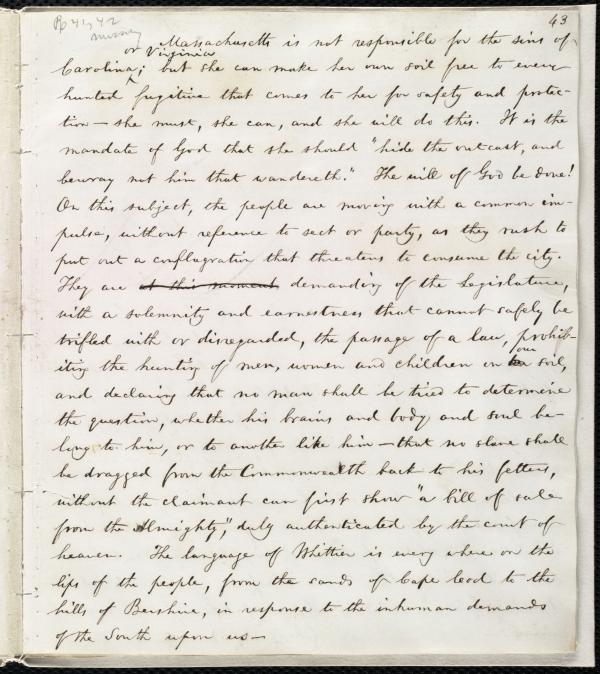 Pp 41, 42 43
missing
Massachusetts is not responsible for the sins of
or Virginia
Carolina; but she can make her own soil free to every
hunted fugitive that comes to her for safety and protec-
tion — she must, she can, and she will do this. It is the
mandate of God that she should "hide the outcast, and
bewray not him that wandereth." The will of God be done!
On this subject, the people are moving with a common im-
pulse, without reference to sect or party, as they rush to
put out a conflagration that threatens to consume the city.
They are at this moment demanding of the Legislature,
with a solemnity and earnestness that cannot safely be
trifled with or disregarded, the passage of a law, prohib-
our
iting the hunting of men, women and children on soil,
and declaring that no man shall be tried to determine
the question, whether his brains and body and soul be-
long to him, or to another like him — that no slave shall
be dragged from the Commonwealth back to his fetters,
without the claimant can first show "a bill of sale
from the Almighty," duly authenticated by the court of
heaven. The language of Whittier is every where on the
lips of the people, from the sands of Cape Cod to the
hills of Bershire, in response to the inhuman demands
of the South upon us —